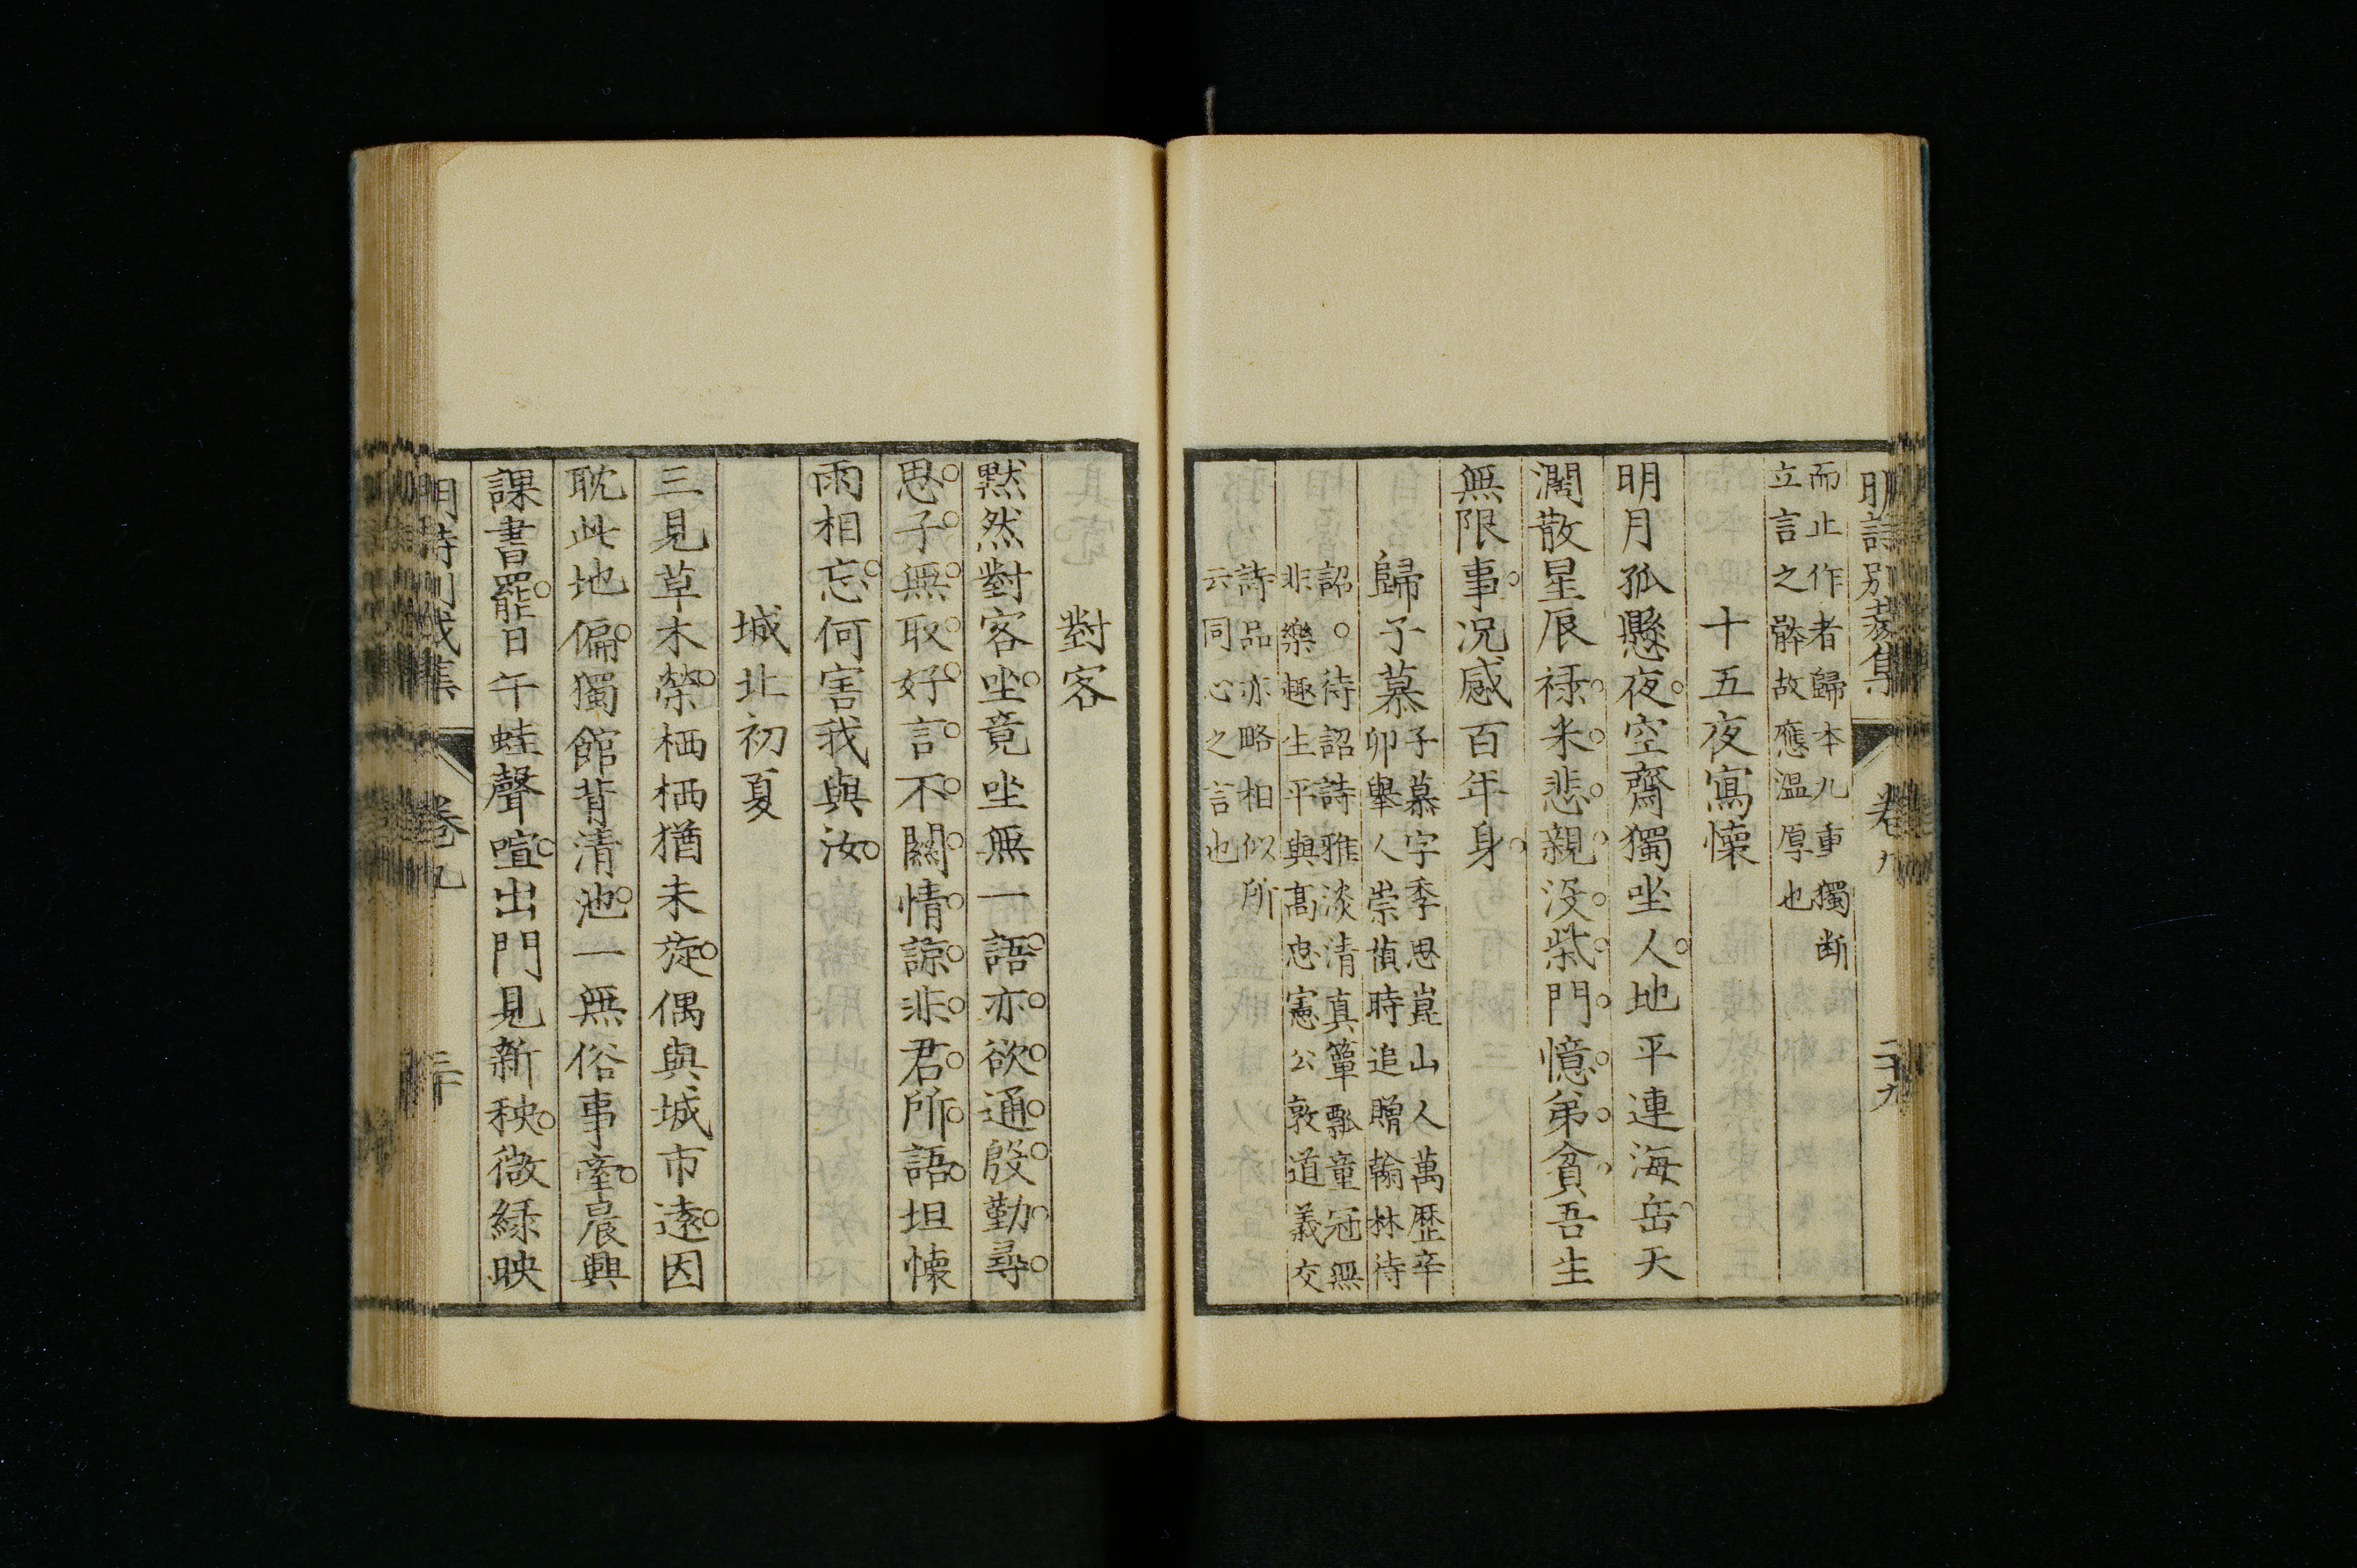 明詩別裁集 卷九 二十九
而止作者歸本九重獨断
立言之體故應溫厚也
十五夜寫懷
明月孤懸夜○空齋獨坐人○地平連海岳○天
濶散星辰○祿○米○悲○親○没○柴○門○憶○弟○貧○吾生
無限事○況感百年身○
歸子慕子慕字季思崑山人萬歷辛
卯舉人崇禎時追贈翰林待
詔○待詔詩雅淡清真簞瓢童冠無
非樂趣生平與高忠憲公敦道義交
詩品亦略相似所
云同心之言也
對客
默然對客坐○竟坐無一語○亦○欲○通○殷○勤○尋○
思○子○無○取○好○言○不○關○情○諒○非○君○所○語○坦懷
兩相忘○何害我與汝○
城北初夏
三見草木榮○栖栖猶未旋○偶與城市遠○因
耽此地偏○獨館背清池○一無俗事牽○晨興
課書罷○日午蛙聲喧○出門見新秧○微綠映
明詩別裁集 卷九 三十